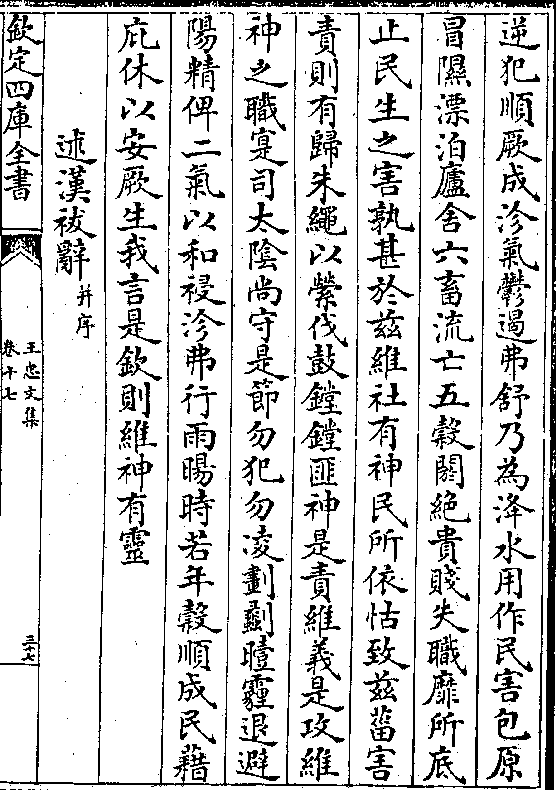 逆犯順厥成沴氣鬱遏弗舒乃為洚水用作民害包原
冒隰漂泊廬舍六畜流亡五穀閼絶貴賤失職靡所底
止民生之害孰甚於兹維社有神民所依怙致兹菑害
責則有歸朱繩以縈伐鼓鏜鏜匪神是責維義是攻維
神之職寔司太陰尚守是節勿犯勿凌劃劙曀霾退避
陽精俾二氣以和祲沴弗行雨暘時若年穀順成民藉
庇休以安厥生我言是欽則維神有靈
述漢祓辭并序
欽定四庫全書
王忠文集
卷十七
三十七